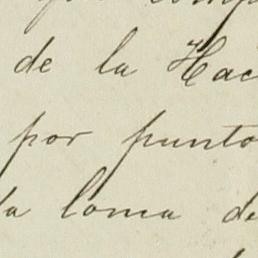 de la Hac
por punto
la loma de